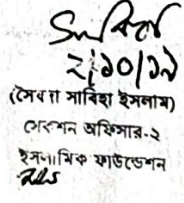 ২/১০/১৯
(সৈয়দা সাবিহা ইসলাম)
সেকশন অফিসার-২
ইসলামিক ফাউন্ডেশন